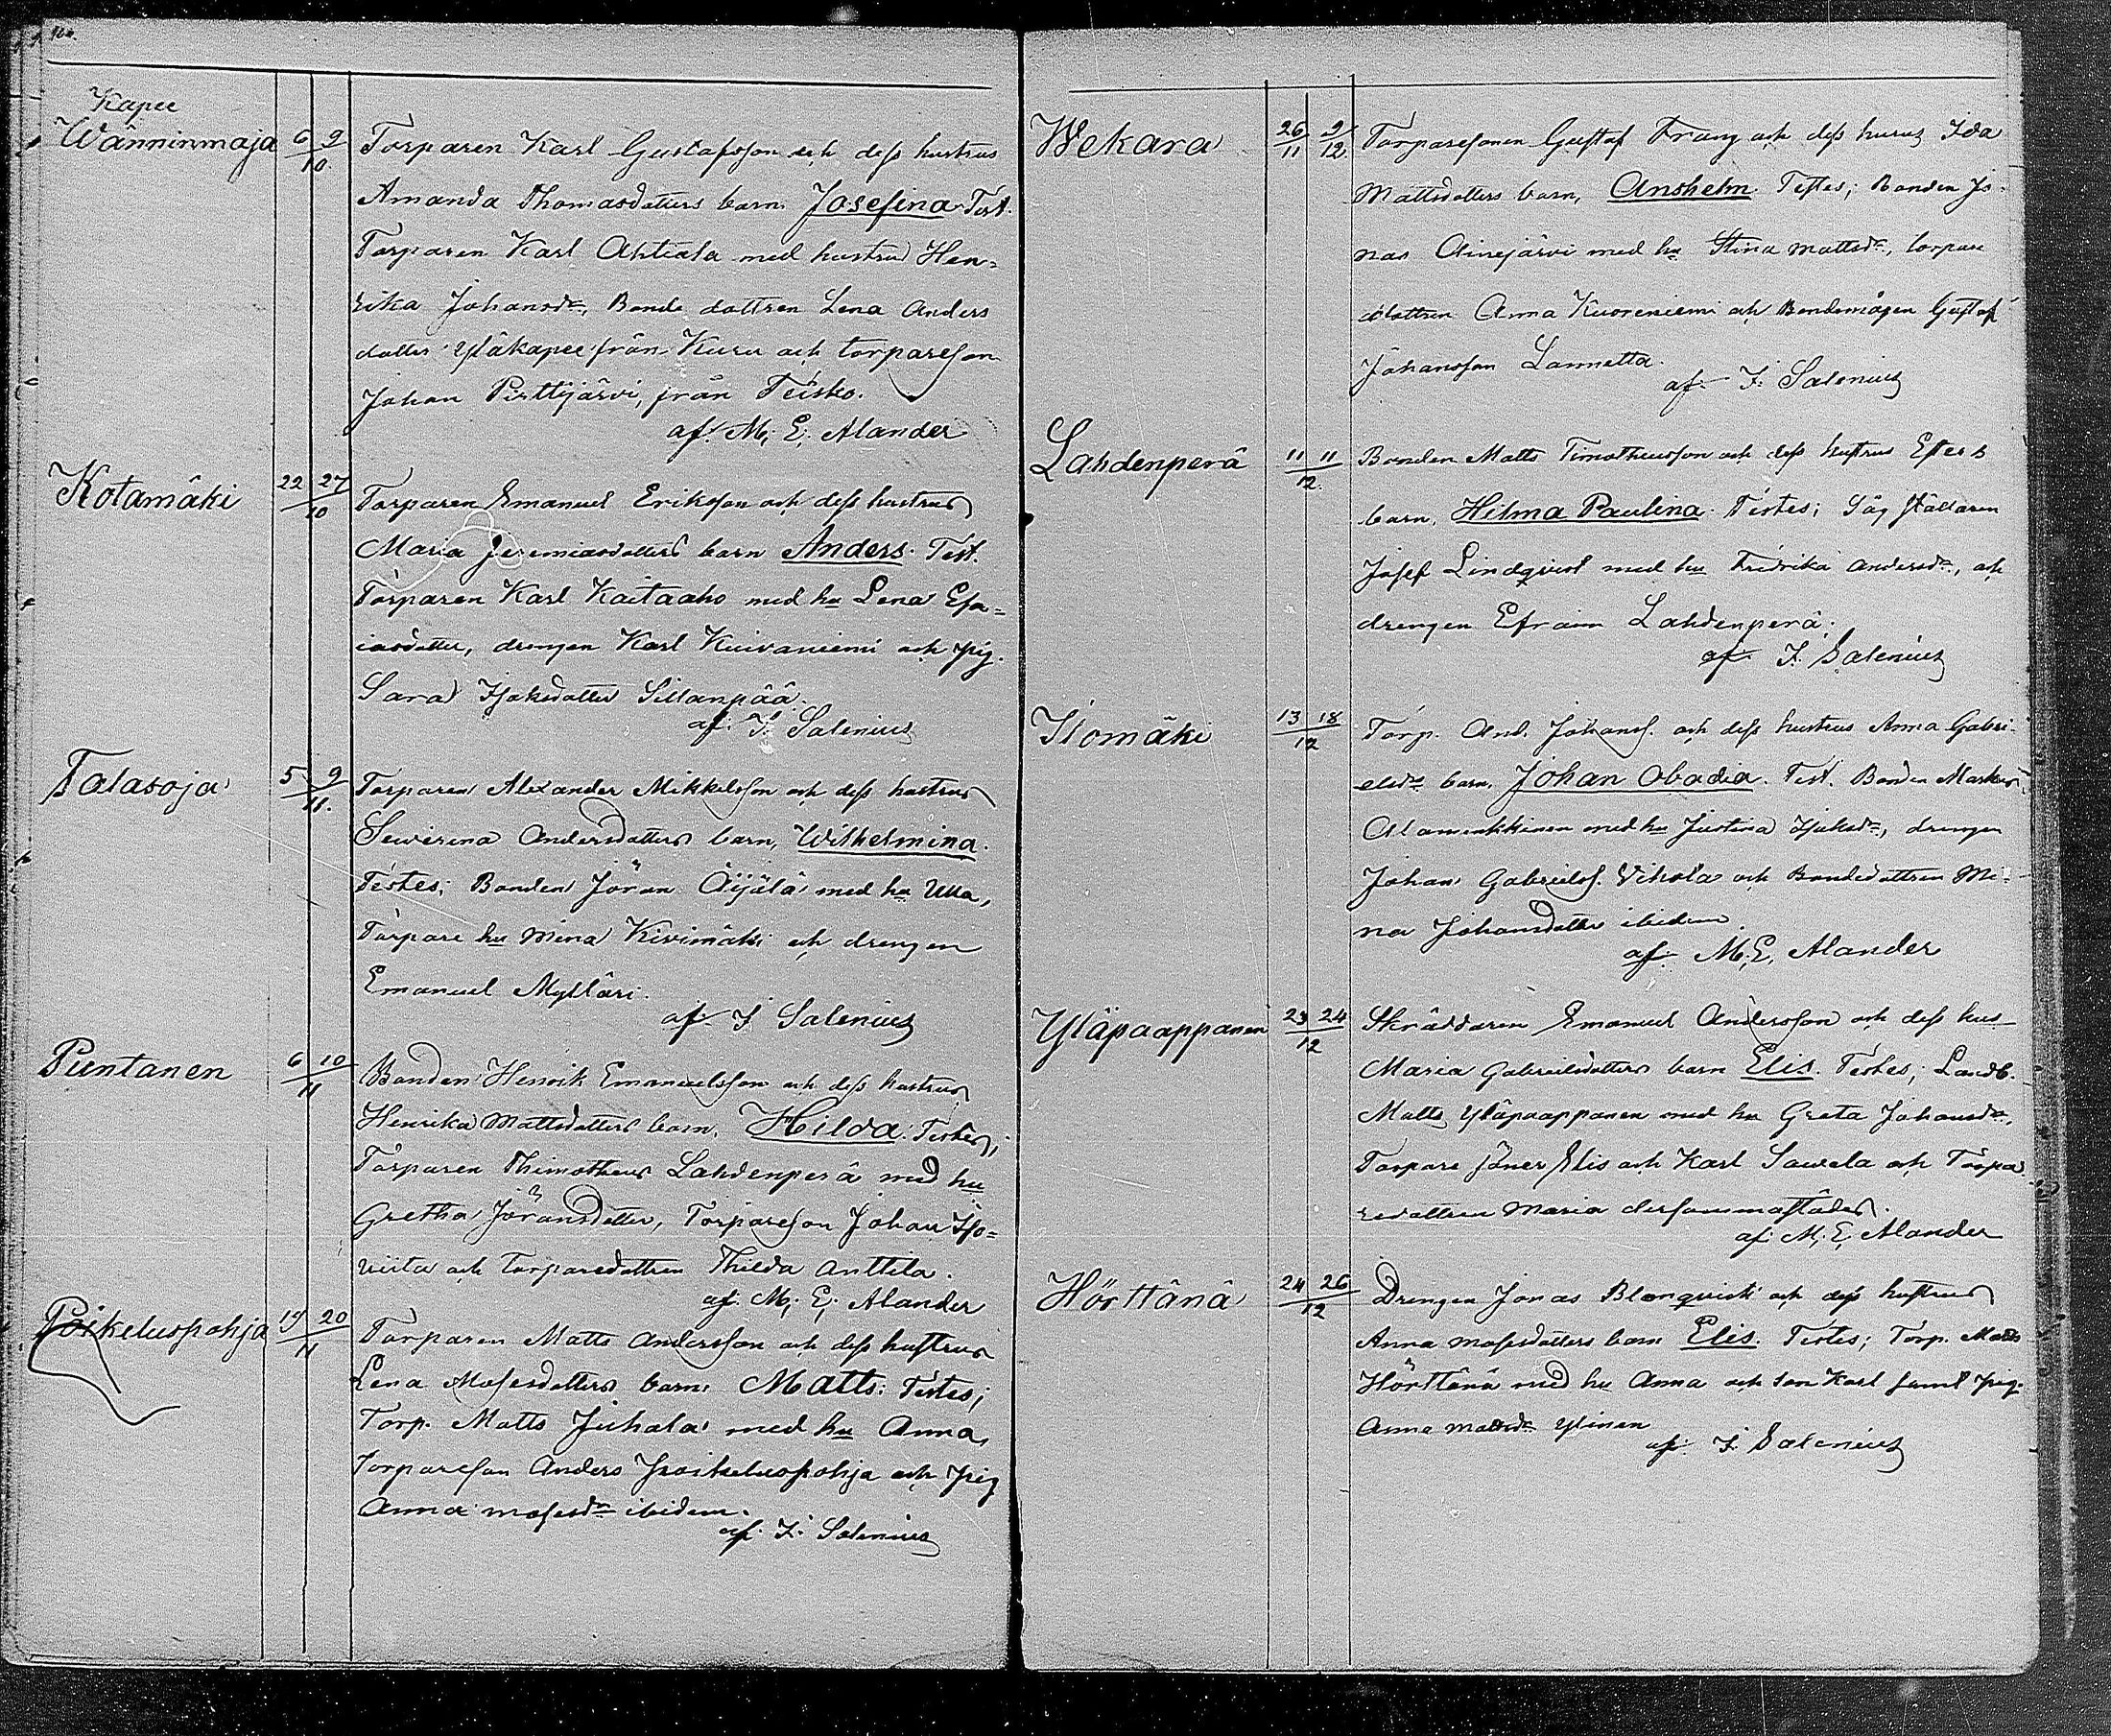 160.
Kapee
Wänninmaja 6 9/10. Torparen Karl Gustafsson och dess hustrus
Amanda Thomasdotters barn Josefina Test.
Torparen Karl Ahtiala med hustru Hen=
rika Johansdr, Bonde dottren Lena Anders
dotter Yläkapee från Kuru och torpareson
Johan Pirttijärvi, från Teisko.
af. M. E. Alander
Kotamäki 22 27/10 Torparen Emanuel Eriksson och dess hustrus
Maria Jeremiasdotters barn Anders. Test.
Torparen Karl Kaitaaho med hu Lena Esa=
iasdotter, drengen Karl Kuivaniemi och pig.
Sara Isaksdotter Sillanpää.
af. F. Salenius
Talasoja 5 9/11. Torparen Alexander Mikkelsson och dess hustrus
Sewerina Andersdotters barn, Wilhelmina.
Testes; Bonden Jöran Äijälä med hu Ulla,
Torpare hu Mina Kivimäki och drengen
Emanuel Mylläri.
af. F. Salenius
Puntanen 6 10/11 Bonden Henrik Emanuelsson och dess hustrus
Henrika Mattsdotters barn. Hilda. Testes;
Torparen Thimotheus Lahdenperä med hu
Gretha Jöransdotter, Torpareson Johan Iso=
viita och torparedottren Thilda Anttila.
af. M. E. Alander
Poikeluspohja 19 20/11 Torparen Matts Andersson och dess hustrus
Lena Mosesdotters barn: Matts: Testes;
Torp. Matts Juhala med hu Anna,
torpareson Anders Poikeluspohja och pig
Anna Mosesdr ibidem.
af. F. Salenius
Wekara 26/11 2/12. Torparesonen Gustaf Frans och dess hurus Ida
Mattsdotters barn, Anshelm. Testes; Bonden Jo-
nas Ainejärvi med hu Stina Mattsdr, torpare
dottren Anna Kuoreniemi och Bondemågen Gustaf
Johansson Lannetta.
af F. Salenius
Lahdenperä 11 11/12. Bonden Matts Timotheusson och dess hustrus Esters
barn, Hilma Paulina. Testes; Såg ställaren
Josef Lindqvist med hu Fredrika Andersdr, och
drengen Efraim Lahdenperä.
af F. Salenius
Ilomäki 13 18/12 Torp. And. Johanss. och dess hustrus Anna Gabri-
elsdr barn. Johan Obadia. Test. Bonden Markus
Alamenkkinen med hu Justina Isaksdr, drengen
Johan Gabrielss. Vihola och Bondedottren Mi-
na Johansdotter ibidem
af. M. E. Alander
Yläpaappanen 23 24/12 Skräddaren Emanuel Andersson och dess hus
Maria Gabrielsdotters barn Elis. Testes; Landb.
Matts Yläpaappanen med hu Greta Johansdr,
Torpare söner Elis och Karl Sawela och Torpa
redottren Maria dersammastädes.
af. M. E. Alander
Hörttänä 24 26/12 Drengen Jonas Blomqvists och dess hustrus
Anna Mosesdotters barn Elis. Testes; Torp. Matts
Hörttänä med hu Anna och son Karl samt pig.
Anna Mattsdr Ylinen
af. F. Salenius